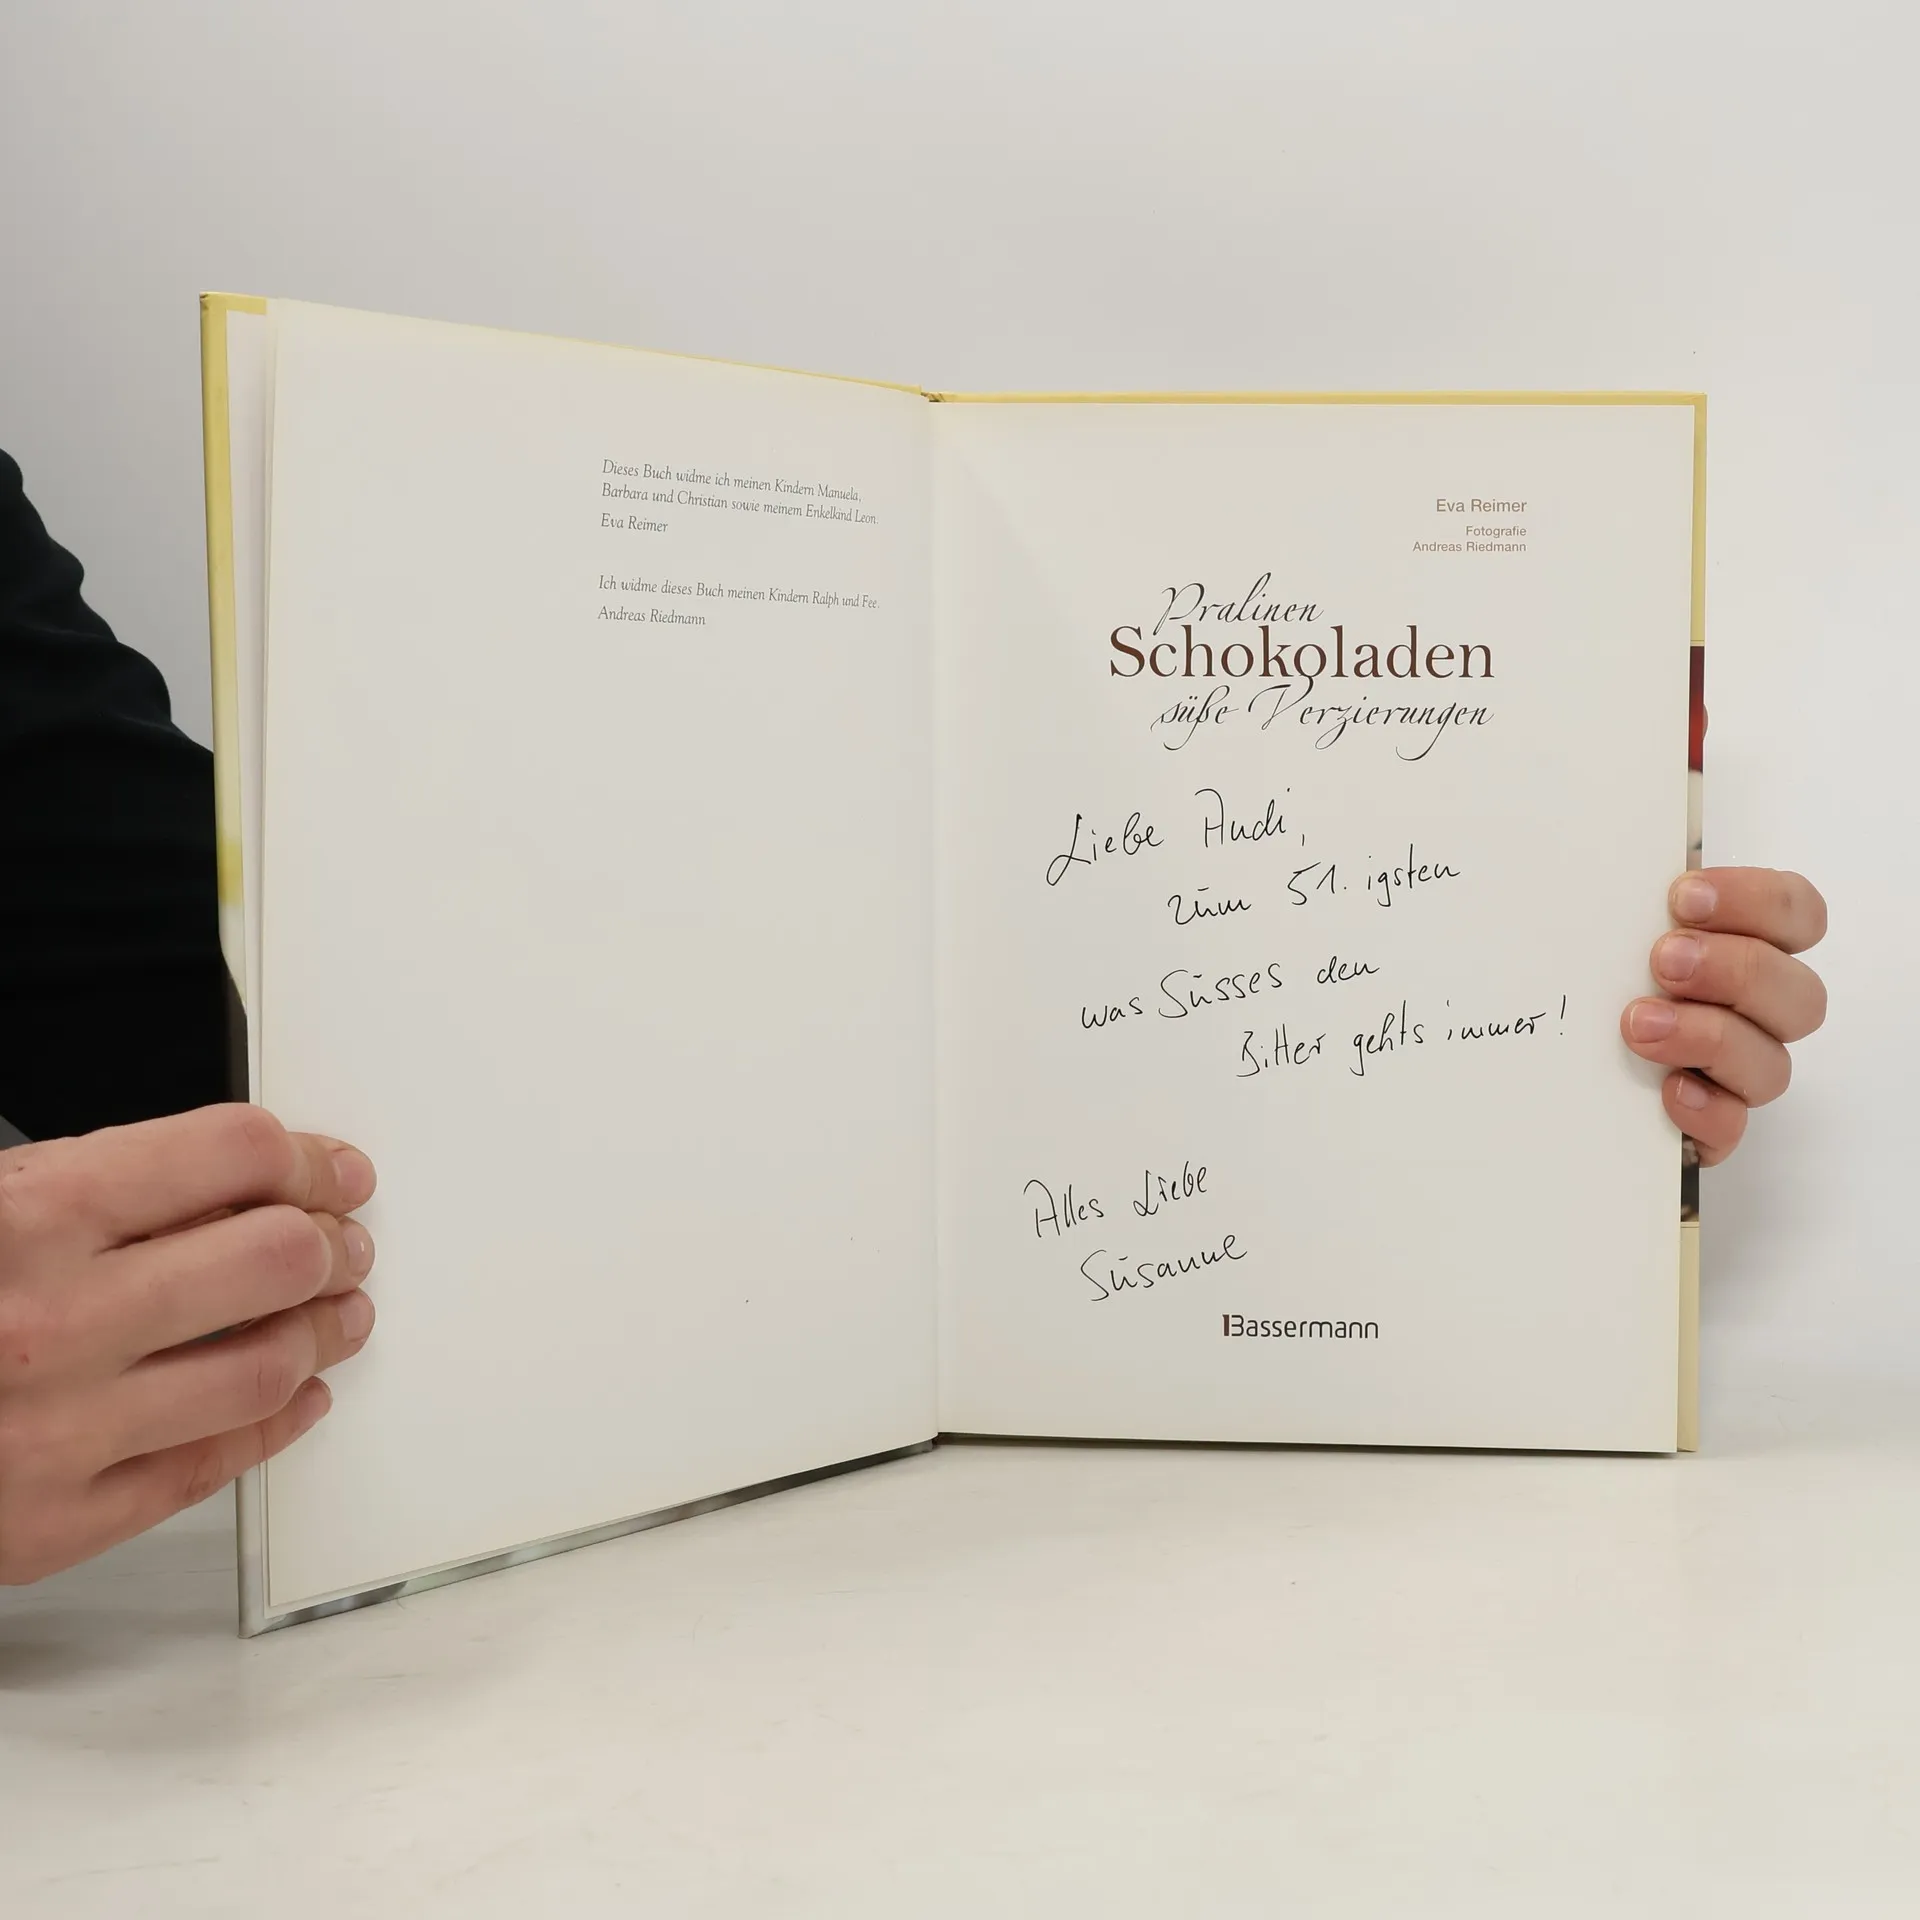 Dieses Buch widme ich meinen Kindern Manuela,
Barbara und Christian sowie meinem Enkelkind Leon.
Eva Reimer
Ich widme dieses Buch meinen Kindern Ralph und Fee.
Andreas Riedmann
Eva Reimer
Fotografie
Andreas Riedmann
Pralinen
Schokoladen
süße Verzierungen
Liebe Andi,
zum 51. igsten
was Süsses den
Bitter gehts immer!
Alles Liebe
Susanne
Bassermann